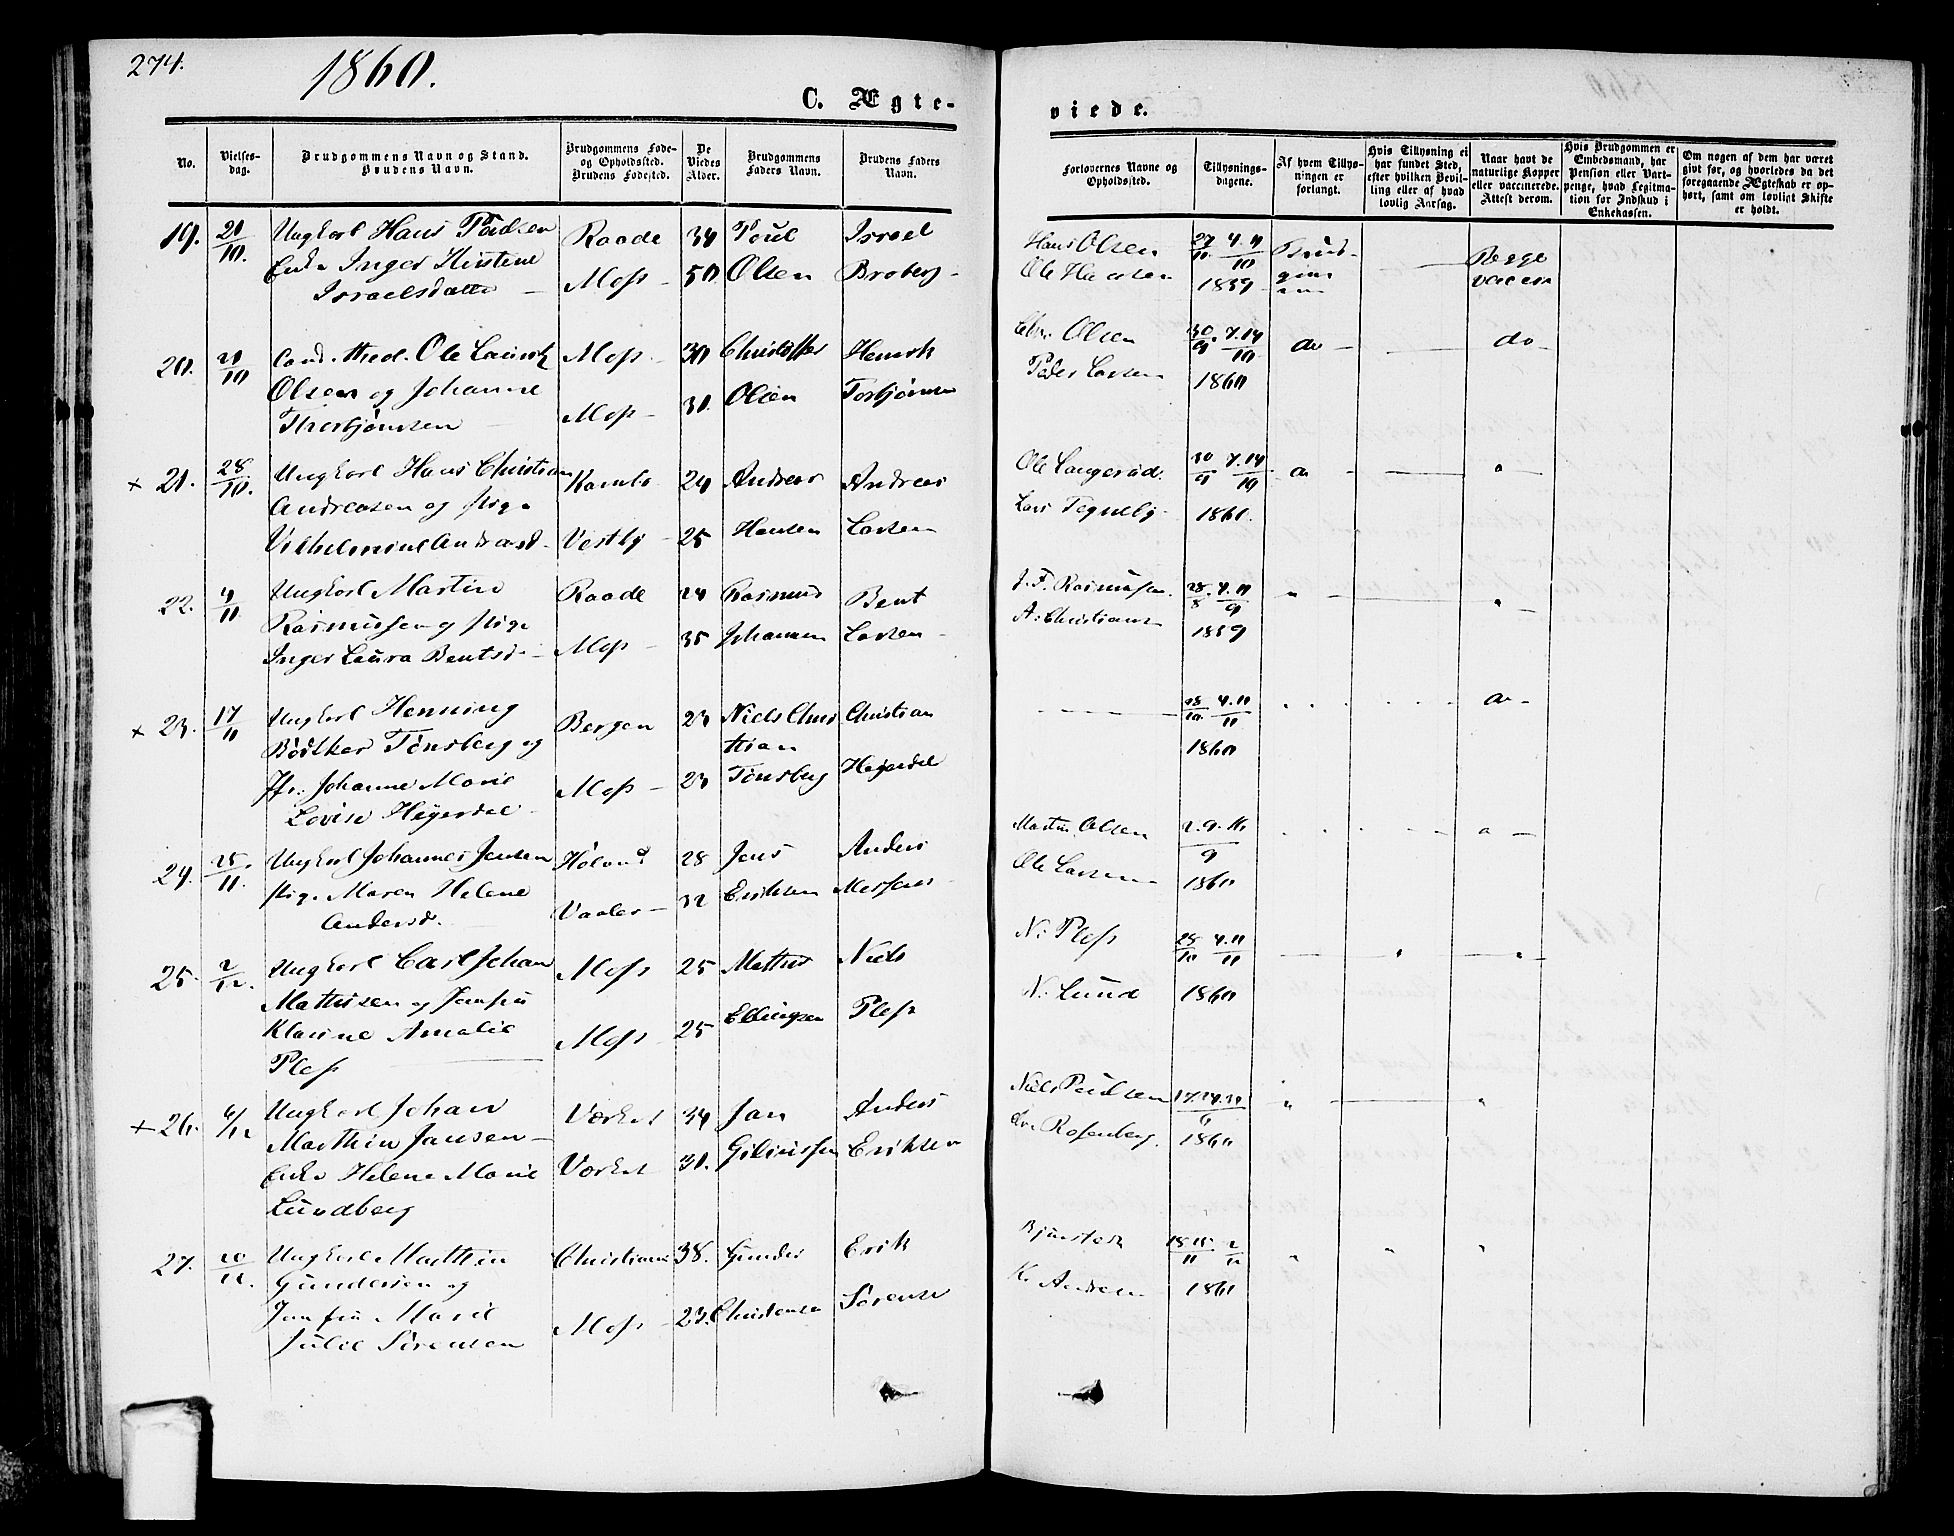 274.
1860.
C. Ægte-
viede.
No.
Vielses-
dag.
Brudgommens Navn og Stand.
Brudens Navn.
Brudgommens Føde-
og Opholdssted.
Brudens Fødested.
De
Viedes
Alder.
Brudgommens
Faders Navn.
Brudens Faders
Navn.
Forlovernes Navne og
Opholdssted.
Tillysnings-
dagene.
Af hvem Tillys-
ningen er
forlangt.
Hvis Tillysning ei
har fundet Sted,
efter hvilken Bevil-
ling eller af hvad
lovlig Aarsag.
Naar havt de
naturlige Kopper
eller vaccinerede.
Attest derom.
Hvis Brudgommen er
Embedsmand, har
Pension eller Vart-
penge, hvad Legitima-
tion for Indskud i
Enkekassen.
Om nogen af dem har været
givt før, og hvorledes da det
foregaaende Ægteskab er op-
hørt, samt om lovligt Skifte
er holdt.
19. 21/10. Ungkarl Hans Poulsen Raade 34 Poul Israel Hans Olsen 4.11/10 Brud-
Enke Inger Kirstine Moss - 50 Olsen Broberg - 1859 Begge
Israelsdatter - vaccin
20. 21/10 Cand. Theol. Ole Lauritz Moss - 30 Christoffer Henrik Chr. Olsen 30/9. 7.14/10 do - do -
Olsen og Johanne Moss - 31. Olsen Torbjørnsen Peder Larsen 1860
Thorbjørnsen -
× 21. 28/10. Ungkarl Hans Christian Kambo 24 Andreas Andreas Ole Langerød. 30/9 7.14/10
Andreasen og Pige Lars Tegneby - 1860.
Vilhelmine Andreasd. Vestby - 25 Hansen Larsen
22. 4/11 Ungkarl Martin Raade 24 Rasmus Bent J. F. Rasmussen. 28/8. 4.11/9
Rasmussen og Pige Moss - 35 Johannsen Larsen - A. Christians 1859
Inger Laura Bentsd. -
× 23. 17/11 Ungkarl Henning Bergen 23 Niels Chris Christian 28/10. 4.11/11
Bødtker Tønsberg og tian 1860
Jfr. Johanne Marie Moss - 23 Tønsberg Heyerdal
Lovise Heyerdal -
24. 25/11. Ungkarl Johannes Jensen Høland 28 Jens Anders Martin Olsen 2.9.16/9
Pige Maren Helene Vaaler - 32 Eriksen Ole Larsen 1860
Andersd.
25. 2/12. Ungkarl Carl Johan Moss 25 Mathis Niels N. Pless 28/10 4.11/11
Mathisen og Jomfru N. Lund 1860
Klarine Amalie Moss 25 Ellingsen Pless
Pless
× 26. 6/12 Ungkarl Johan Værket 34 Jan Anders Niels Paulsen
Marthin Jansen - 1860
Enke Helene Marie Værket 31. Eriksen Rosenberg.
Lundberg
27. Ungkarl Marthin Christiania 38. Gunder Erik
Gundersen og K. Andersen 1860
Jomfru Marie Moss - 23. Christensen Sørensen
Julie Sørensen